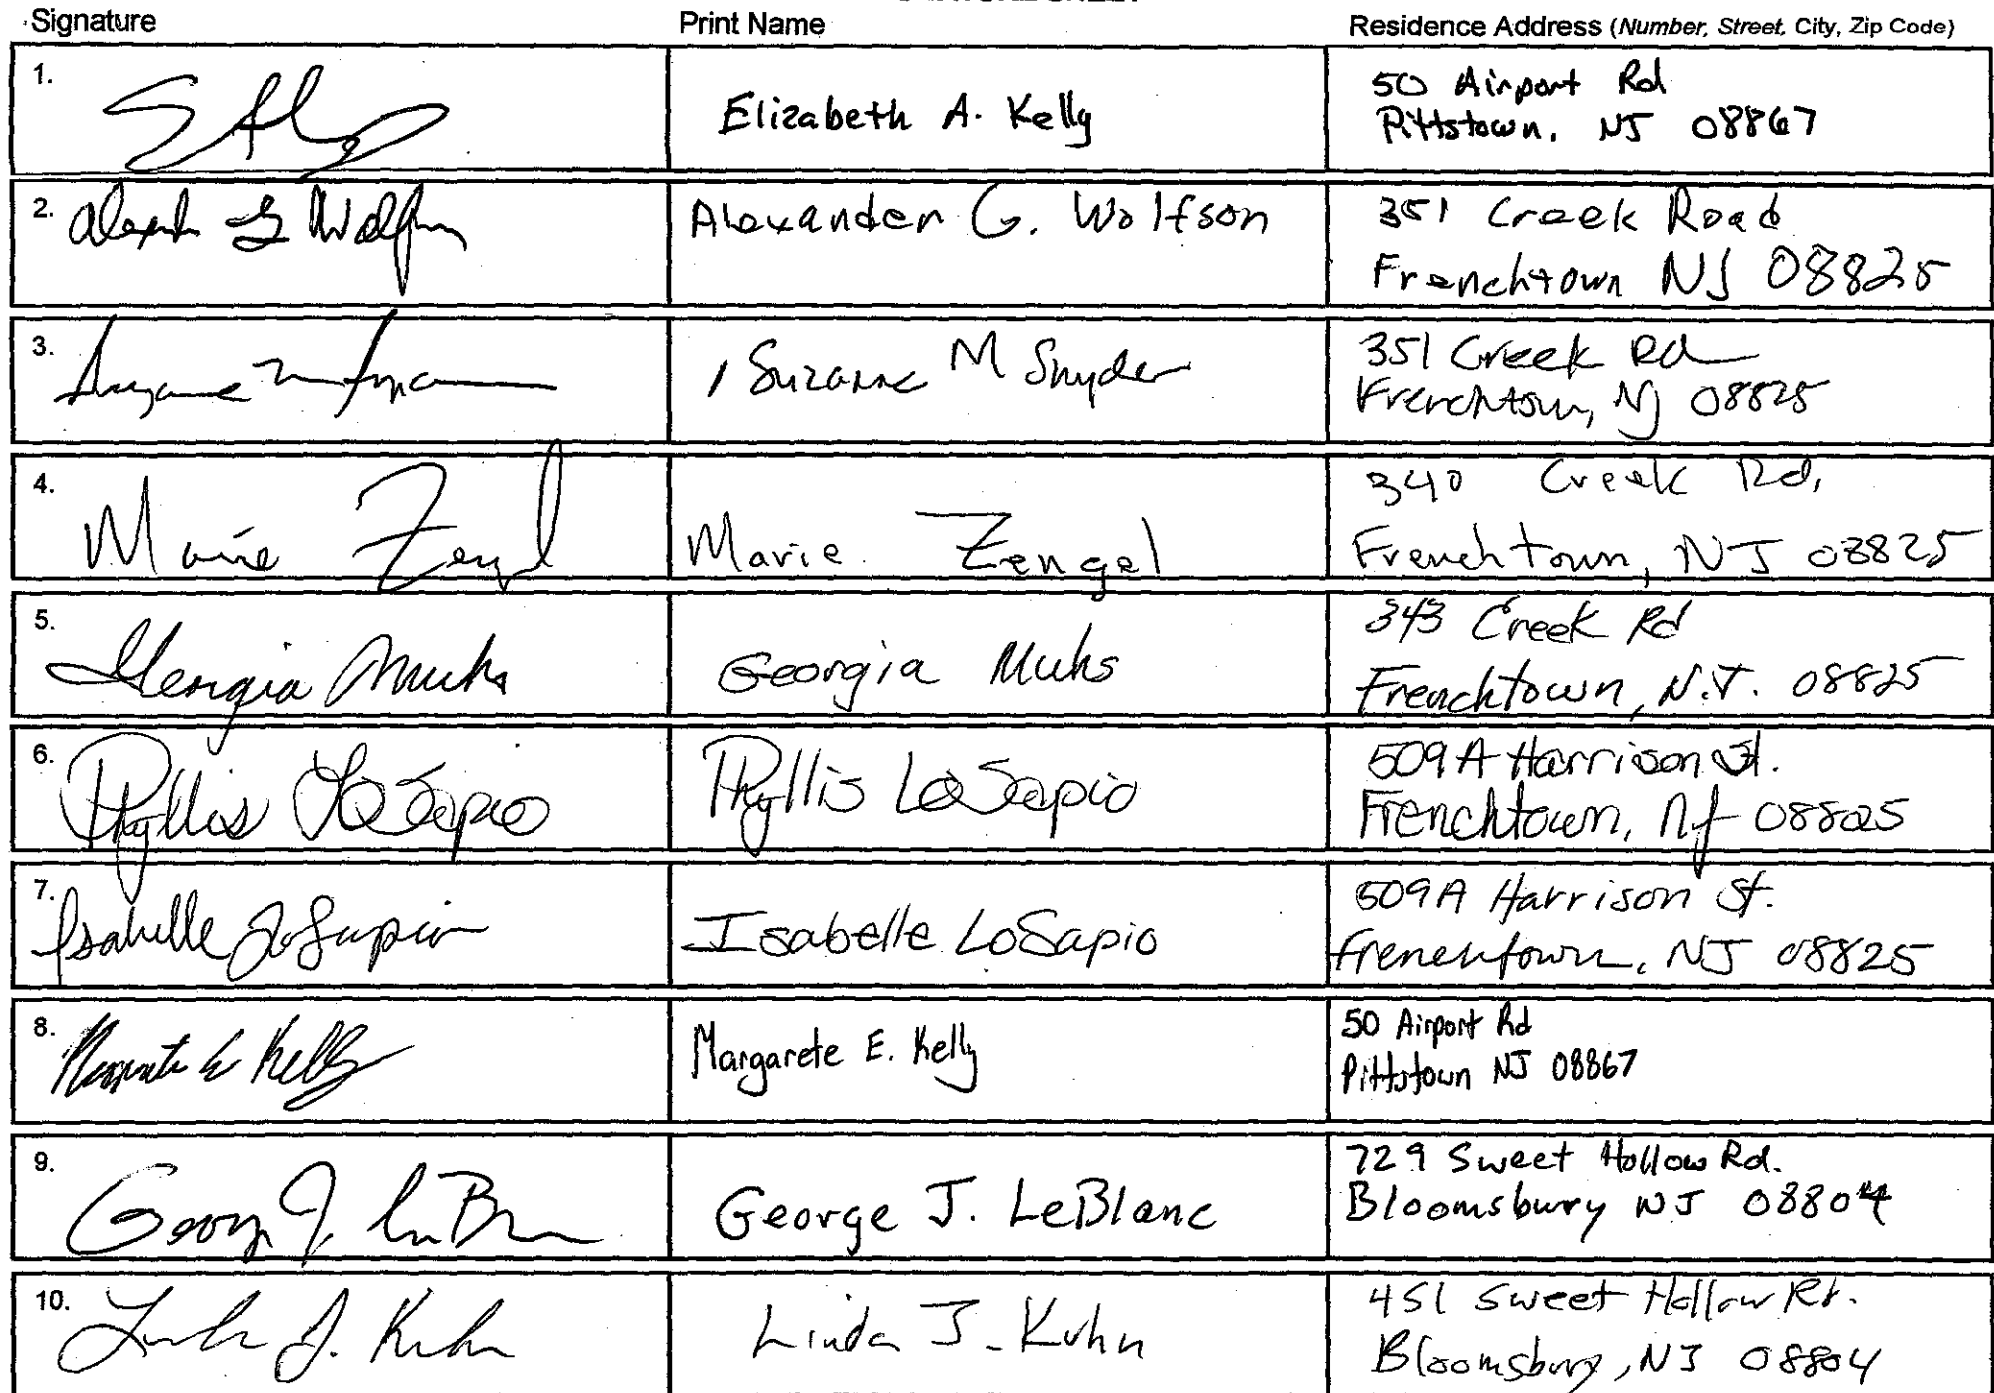 Signature Print Name Residence Address (Number, Street, City, Zip Code)
1. Elizabeth A. Kelly 50 Airport Rd
Pittstown, NJ 08867
2. Alexander G. Wolfson 351 Creek Road
Frenchtown NJ 08825
3. Suzanne M Snyder 351 Creek Rd
Frenchtown, NJ 08825
4. Marie Zengel Marie Zengel 340 Creek Rd,
Frenchtown, NJ 08825
5. Georgia Muhs Georgia Muhs 343 Creek Rd
Frenchtown, N.J. 08825
6. Phyllis LoSapio Phyllis LoSapio 509A Harrison St.
Frenchtown, NJ 08825
7. Isabelle LoSapio Isabelle LoSapio 509A Harrison St.
Frenchtown, NJ 08825
8. Margarete E. Kelly 50 Airport Rd
Pittstown NJ 08867
9. George J. LeBlanc 729 Sweet Hollow Rd.
Bloomsbury NJ 08804
10. Linda J. Kuhn Linda J. Kuhn 451 Sweet Hollow Rd.
Bloomsbury, NJ 08804